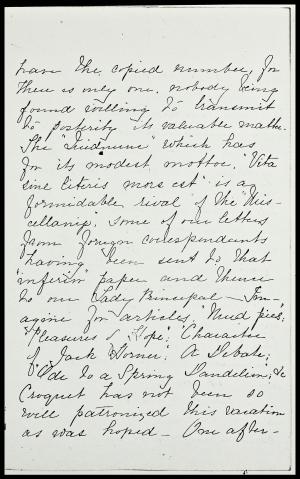 have the copied number, for
there is only one, nobody being
found willing to transmit
to posterity its valuable matter.
The which has
for its modest mottoe, "Vita
sine literis mors est" is a
formidable rival of the "Mis-
cellania", some of our letters
from foreign correspondents
having been sent to that
"inferior" paper and thence
to our Lady Principal - Im-
agine for articles, "Mud pies;
"Pleasures of Hope"; Character
of Jack Horner; A Debate;
"Ode to a Spring Dandelion; &c
Croquet has not been so
well patronized this vacation
as was hoped - One after-